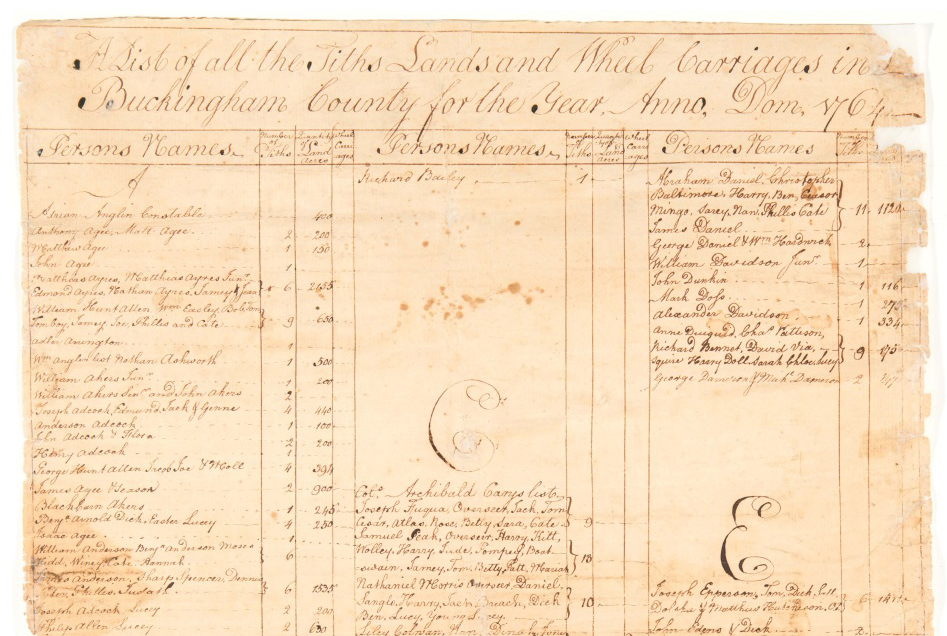 A List of all the Tiths Lands and Wheel Carriages in
Buckingham County for the Year Anno. Dom. 1764
Persons Names
Number of Tiths
Quantity of Land acres
Wheel Carri ages
A
Adrian Anglin Constable 400
Anthony Agee, Matt Agee 2 200
Matthew Agee 1 150
John Agee 1
Mattheas Ayres, Matthias Ayres Junr.
Edmond Ayres, Nathan Ayres, Jamey & Juan } 6 2455
William Hunt Allen Wm. Easley, Bob, Tom
Tom boy, Jamey, Joe, Phillis and Cate } 9 650
Arington 1
Wm Anglin list Nathan Ashworth 1 500
William Akers Junr. 1 200
William Akers Senr. and John Akers 2
Joseph Adcock, Edmund, Jack & Genne 4 440
Anderson Adcock 1 100
John Adcock & Flora 2 200
Henry Adcock 1
George Hunt Allen Jacob Joe & Moll 4 394
James Agee & 2 900
Blackburn Akers 1 245
Benja. Arnold Dick, Easter Lucey 4 250
Isaac Agee 1
William Anderson Benja. Anderson Moses
Judd, Winey Cate Hannah } 6
James Anderson, Sharp Spencer, Dennis
Tom, Phillis, Judath } 6 1535
Joseph Adcock Lucey 2 200
Philip Allen Lucey 2 630
Persons Names
Number of Tiths
Quantity of Land acres
Wheel Carri ages
Richard Bailey 1
C
Colo. Archibald Carys list
Joseph Fuqua, Overseer, Jack, Tom
Cesar, Atlas, Rose, Betty, Sara, Cate } 9
Samuel Overseer, Harry, Kitt,
Wolley, Harry, Jude, Pompey, Boat
swain, Jamey, Tom, Betty, Patt, Mariah } 13
Nathaniel Morris Overseer, Daniel
Harry, Jack, Dick } 10
Ben, Lucy, Young
Persons Names
Number of Tiths
Abraham Daniel, Christopher
Baltimore, Harry, Ben, Ceasor
Mingo, Sarey, Nan, Phillis Cate } 11 1120
James Daniel
George Daniel & Wm Hardwick 2
William Davidson Junr. 1
John Dunkin 1 116
Mark Doss 1 275
Alexander Davidson 1 334
Anne Duiguid, Chas. Patteson,
Richard Bennet, David Via,
Squire Harry Doll Sarah Chloe Lucey } 9 175
George Dameron & Mark Dameron 2
E
Joseph Epperson, Tom, Dick, Patt
& Matthew Hutcheson 6
John Edens & Dick 2